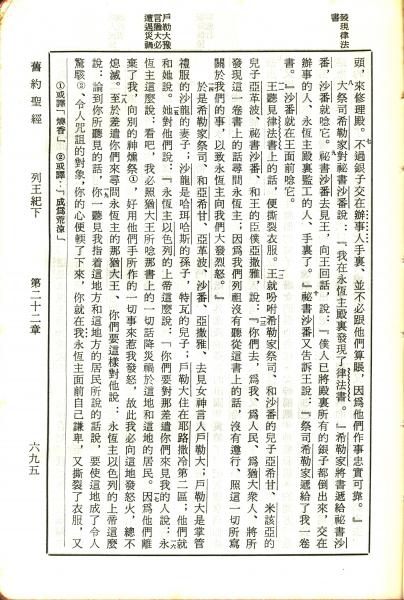 發現律法書
頭,來修理殿。不過銀子交在辦事人手裏、並不必跟他們算賬,因爲他們作事忠實可靠。』
大祭司希勒家對祕書沙番說:『我在永恆主殿裏發現了律法書。』希勒家將書遞給祕書沙
番,沙番就唸它。祕書沙番去見王,向王回話,說:『僕人已將殿裏所有的銀子都倒出來,交在
辦事的人、永恆主殿裏監工的人、手裏了。』祕書沙番又告訴王說:『祭司希勒家遞給了我一卷
書。』沙番就在王面前唸它。
王聽見律法書上的話,便撕裂衣服。王就吩咐希勒家祭司、和沙番的兒子亞希甘、米該亞的
兒子亞革波、祕書沙番、和王的臣僕亞撒雅,說:『你們去,爲我、爲人民、爲猶大衆人、將所
發現這一卷書上的話尋問永恆主;因爲我們列祖沒有聽從這書上的話,沒有遵行、照這一切所寫
關於我們的事,以致永恆主向我們大發烈怒。』
戶勒大豫言猶大必遭遇災禍
於是希勒家祭司、和亞希甘、亞革波、沙番、亞撒雅、去見女神言人戶勒大;戶勒大是掌管
禮服的沙龍的妻子;沙龍是哈珥哈斯的孫子,特瓦的兒子;戶勒大住在耶路撒冷第二區;他們就
和她說。她對他們說:『永恆主以色列的上帝這麼說:「你們要對那差遣你們來見我的人說:永
恆主這麼說:看吧,我必照猶大王所唸那書上的一切話降災禍於這地和這地的居民。因爲他們離
棄了我,向別的神燻祭①,好用他們手所作的一切事來惹我發怒,故此我必向這地發怒火,總不
熄滅。至於差遣你們來尋問永恆主的那猶大王、你們要這樣對他說:永恆主以色列的上帝這麼
說:論到你所聽見的話,你一聽見我指着這地方和這地方的居民所說的話說,要使這地成了令人
驚駭②、令人咒詛的對象,你的心便輭了下來,你就在我永恆主面前自己謙卑,又撕裂了衣服,又
①或譯:『燒香』。 ②或譯:『成爲荒涼』。
舊約聖經 列王紀下 第二十二章 六九五